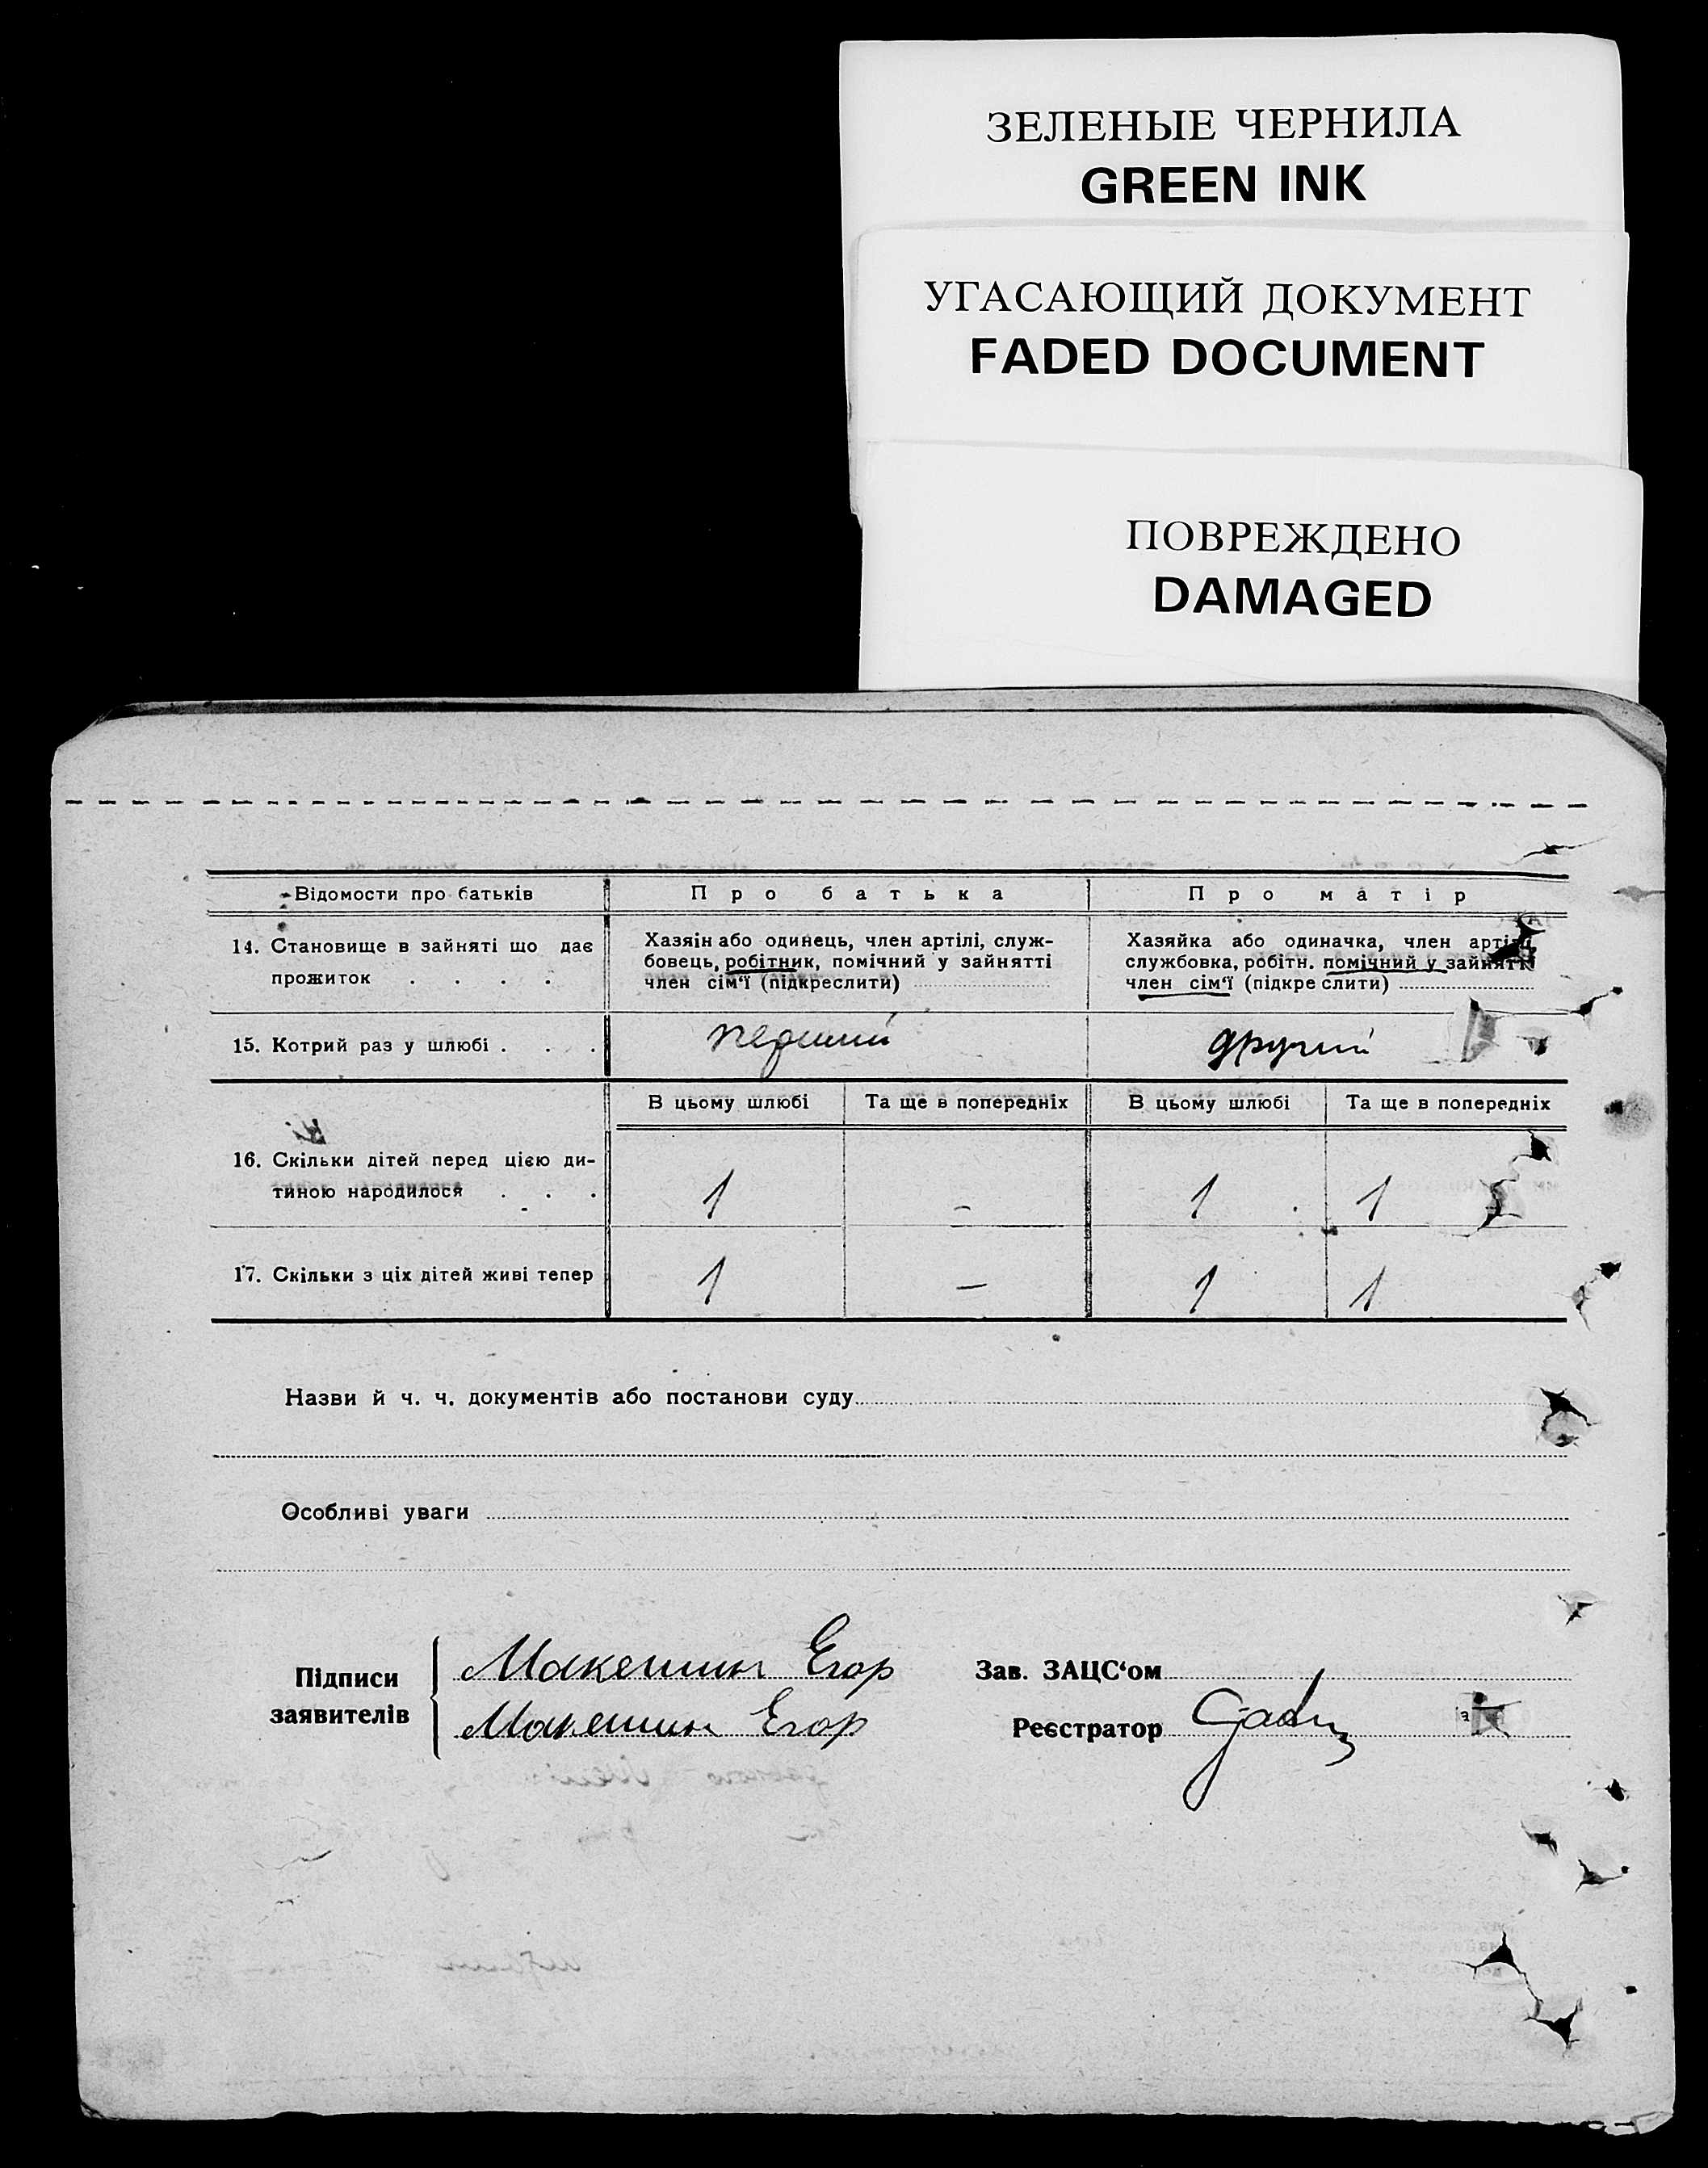 ЗЕЛЕНЫЕ ЧЕРНИЛА
GREEN INK
УГАСАЮЩИЙ ДОКУМЕНТ
FADED DOCUMENT
ПОВРЕЖДЕНО
DAMAGED
Відомости про батьків Про батька Про матір
14. Становище в зайняті що дає прожиток . . . .
Хазяїн або одинець, член артілі, служ-
бовець, робітник, помічний у зайнятті
член сім'ї (підкреслити)
Хазяйка або одиначка, член артілі
службовка, робітн. помічний у зайнятті
член сім'ї (підкреслити)
15. Котрий раз у шлюбі . . . перший другий
В цьому шлюбі Та ще в попередніх В цьому шлюбі Та ще в попередніх
16. Скільки дітей перед цією ди-
тиною народилося . . . 1 - 1 1
17. Скільки з ціх дітей живі тепер 1 - 1 1
Назви й ч. ч. документів або постанови суду
Особливі уваги
Підписи заявителів
Макешин Егор
Макешин Егор
Зав. ЗАЦС'ом
Реєстратор